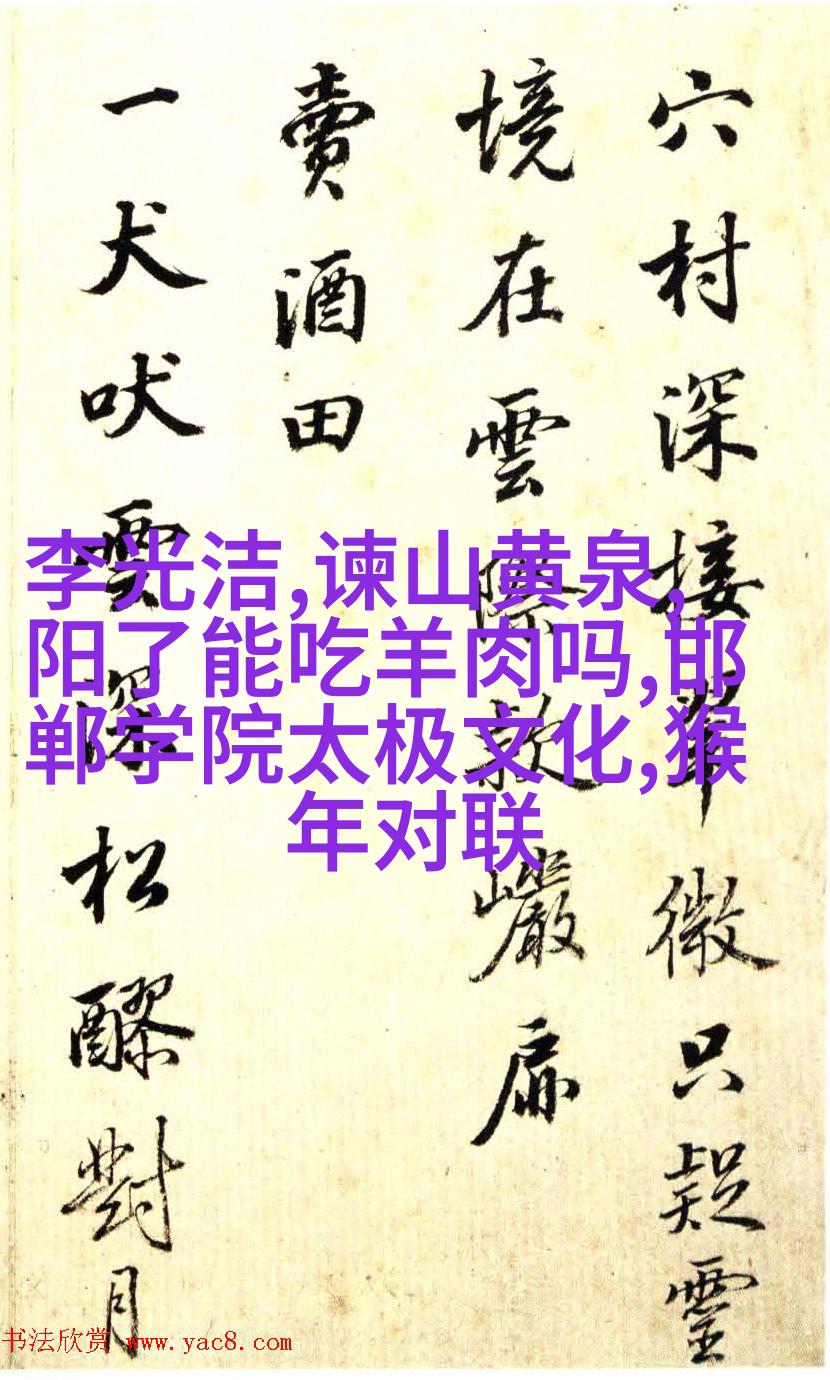 穴村深接翠微只疑靈
境在雲際款巖扉
賣酒田
一犬吠雲深松醪對月
李光洁,谏山黄泉,
阳了能吃羊肉吗,邯
郸学院太极文化,猴
年对联
书法欣赏 www.yac8.com